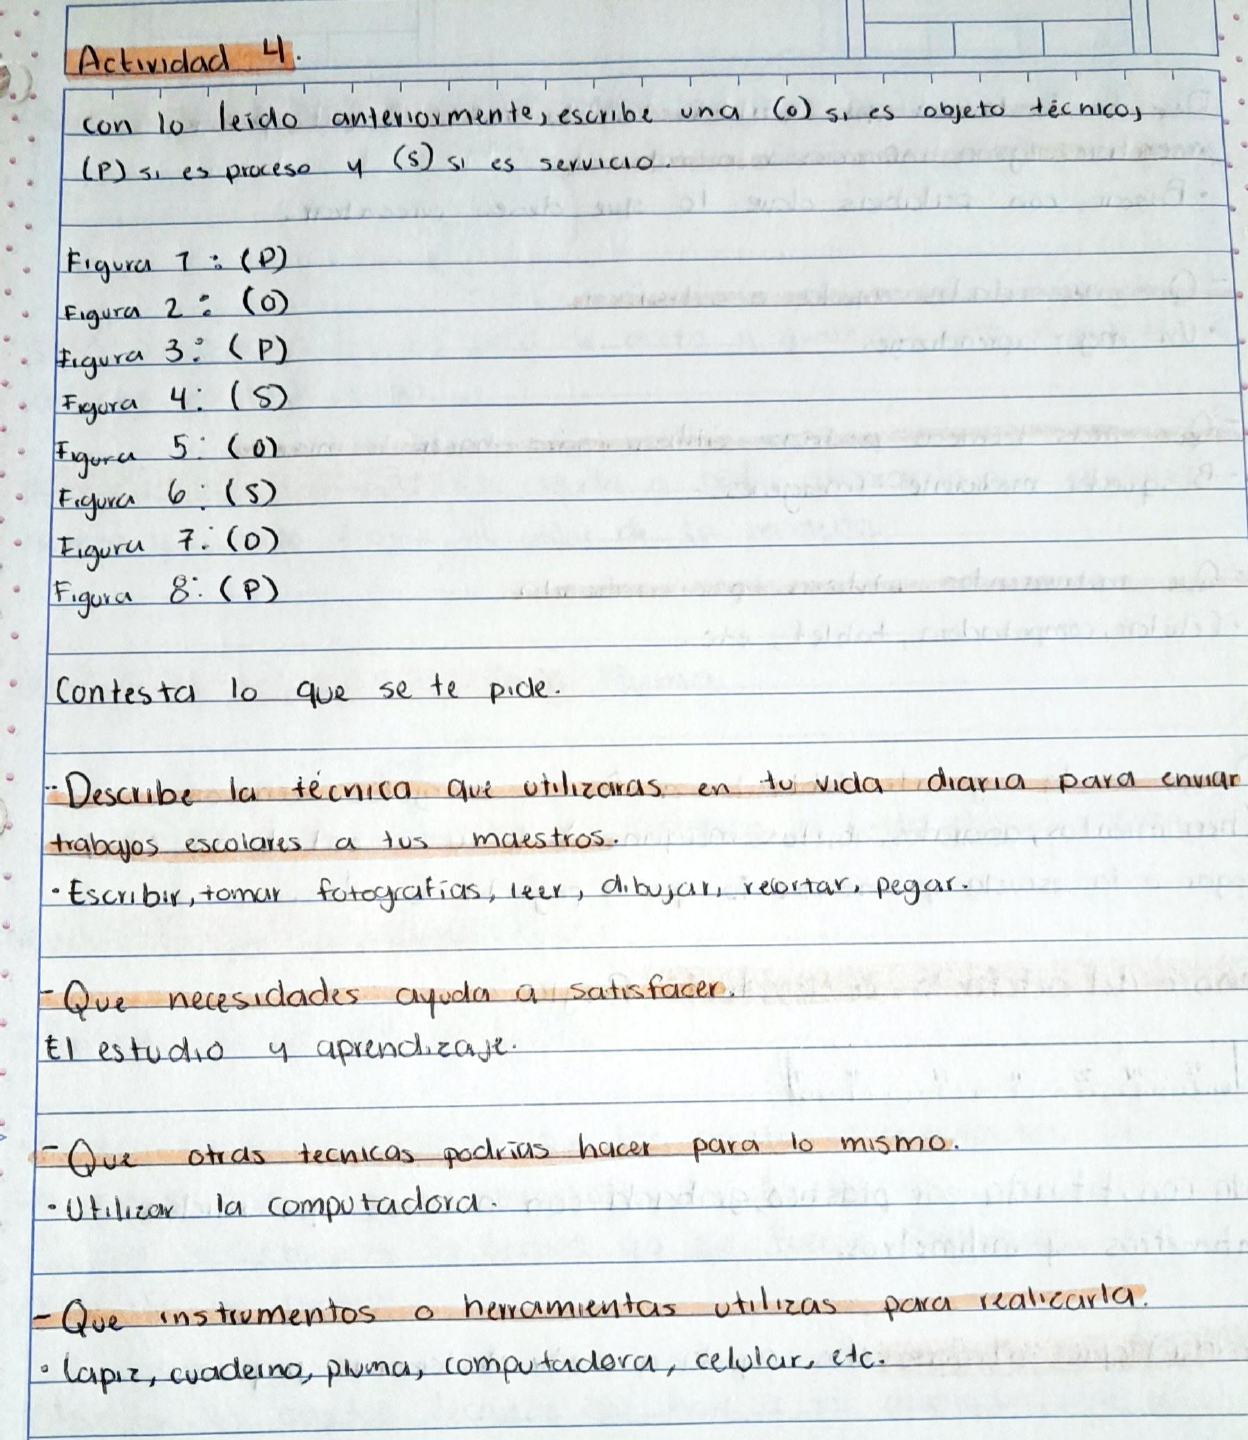 Actividad 4.
con lo leído anteriormente, escribe una (o) si es objeto técnico,
(P) si es proceso y (s) si es servicio.
Figura 1: (P)
Figura 2: (O)
Figura 3: (P)
Figura 4: (S)
Figura 5: (O)
Figura 6: (S)
Figura 7: (O)
Figura 8: (P)
Contesta lo que se te pide.
- Describe la técnica que utilizaras en tu vida diaria para enviar
trabajos escolares a tus maestros.
• Escribir, tomar fotografías, leer, dibujar, recortar, pegar.
- Que necesidades ayuda a satisfacer.
El estudio y aprendizaje.
- Que otras tecnicas podrías hacer para lo mismo.
• Utilizar la computadora.
- Que instrumentos o herramientas utilizas para realizarla.
• lapiz, cuaderno, pluma, computadora, celular, etc.